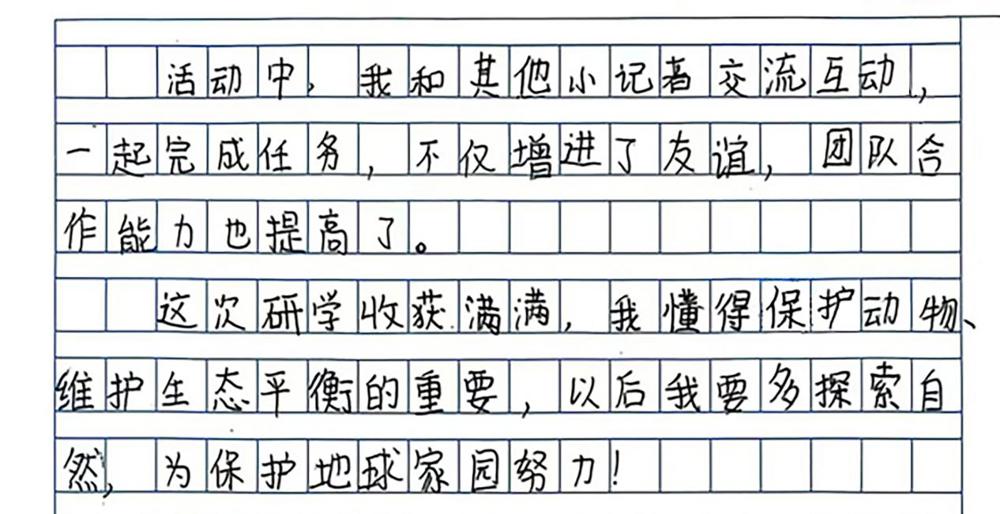 活动中，我和其他小记者交流互动，
一起完成任务，不仅增进了友谊，团队合
作能力也提高了。
这次研学收获满满，我懂得保护动物、
维护生态平衡的重要，以后我要多探索自
然，为保护地球家园努力！